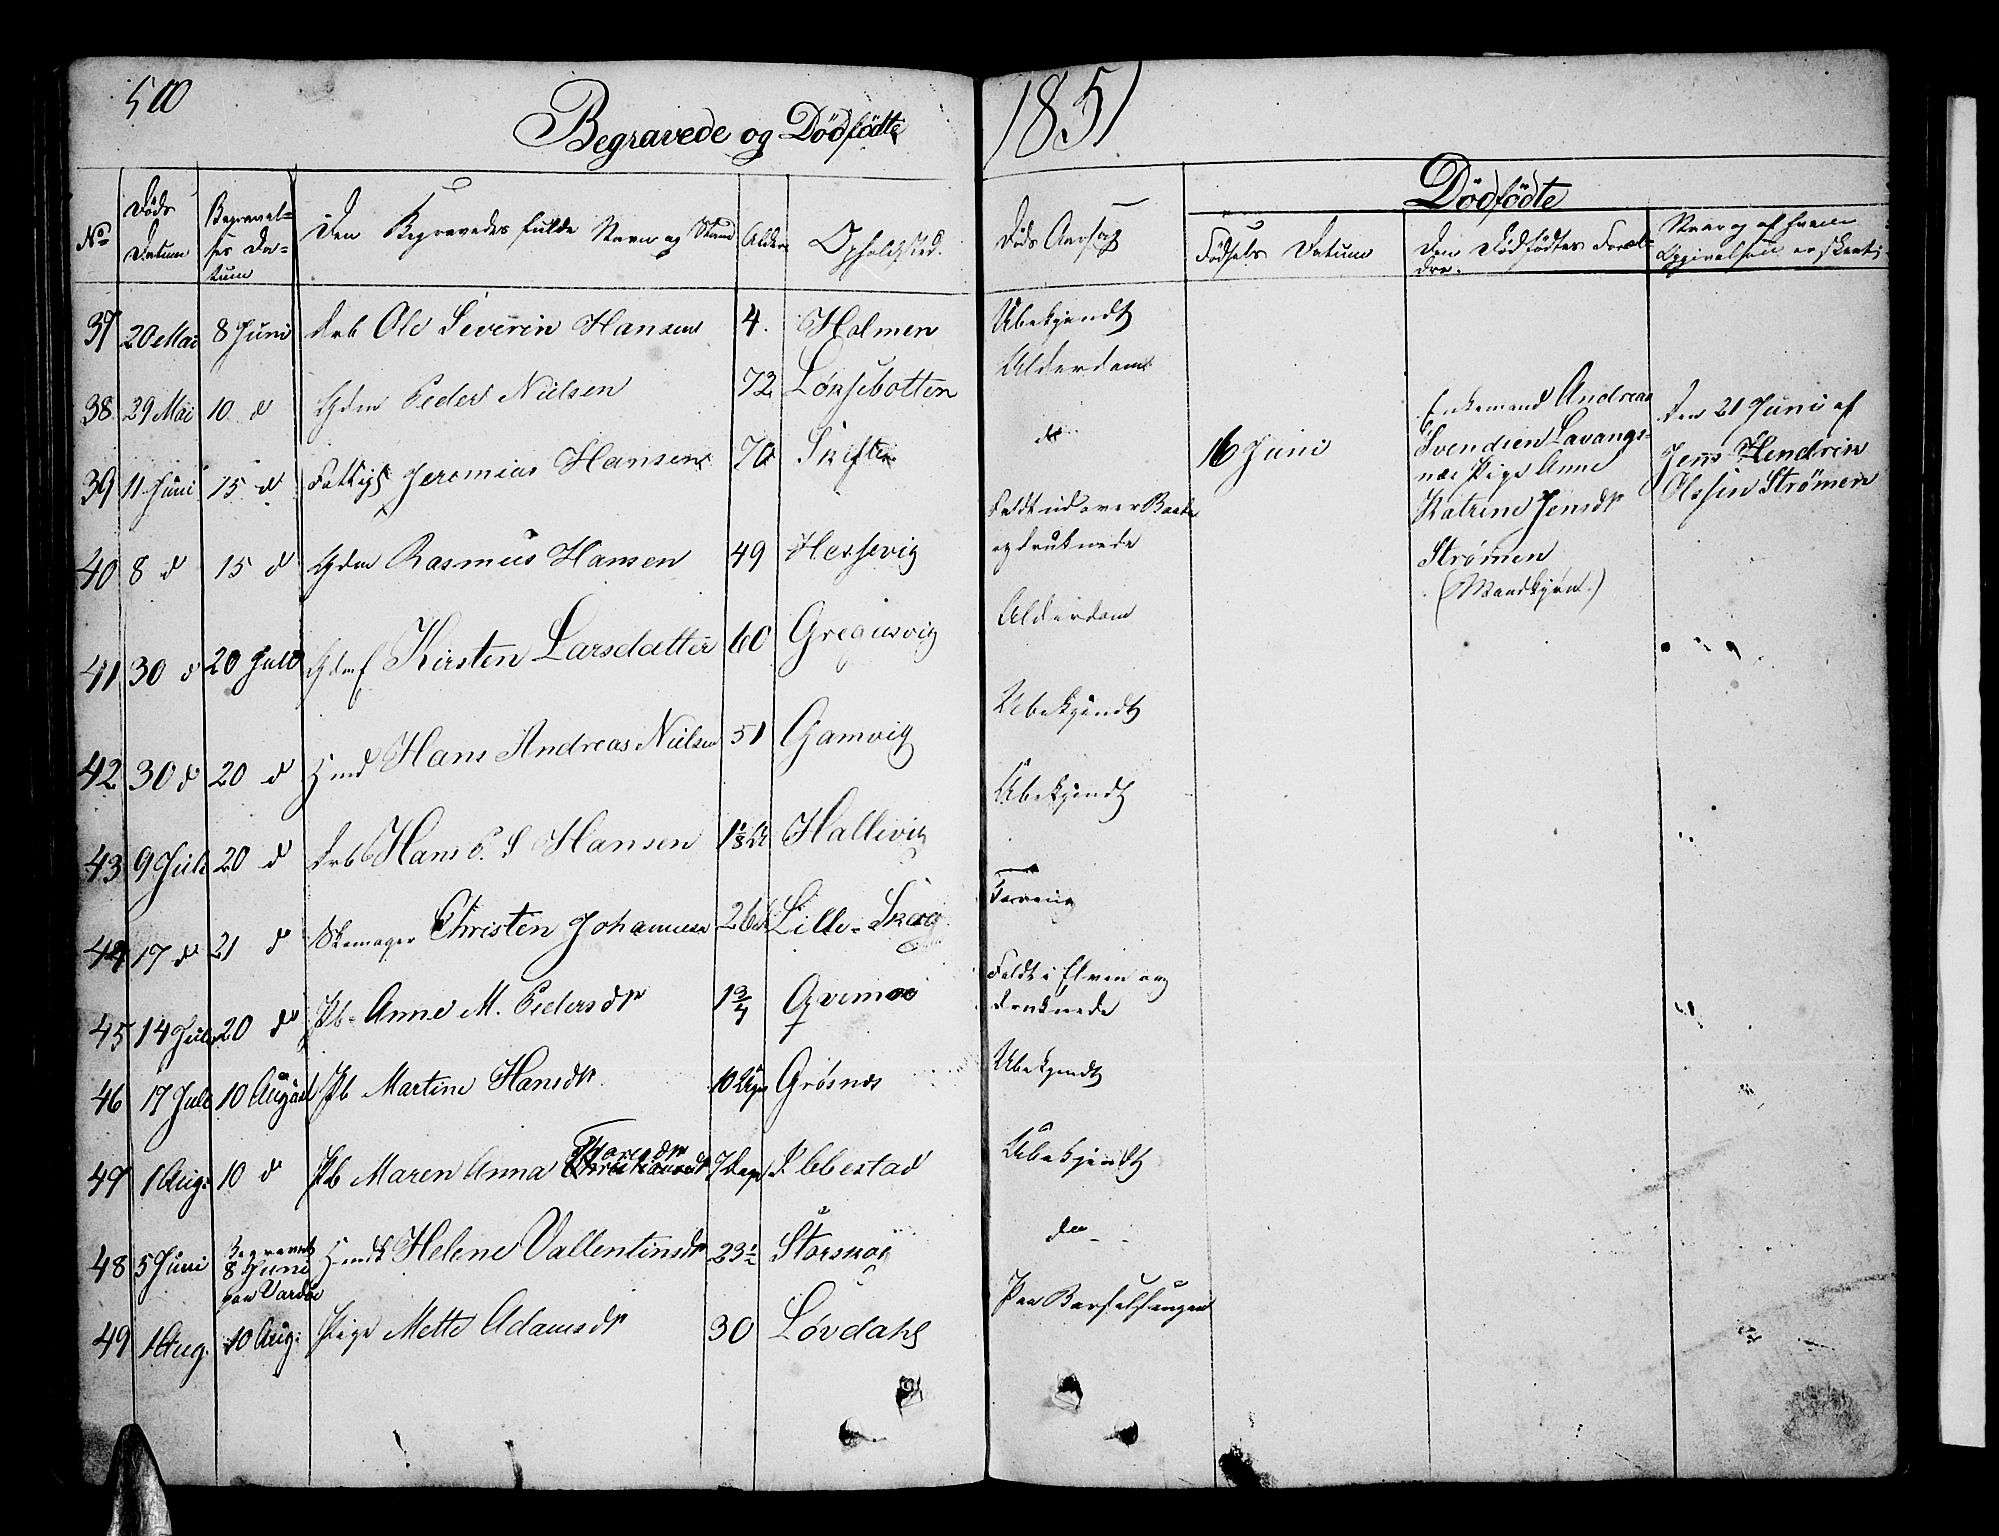 500
Begravede og Dødfødte
1851
No
Døds Datum
Begravelses Datum
Den Begravedes fulde Navn og Stand
Alder
Opholdsted.
Døds Aarsag
Dødfødte
Fødsels Datum
Den Dødfødtes Forældre.
Naar og af hvem Opgivelsen er skeet
37 20 Mai 8 Juni Drb Ole Severin Hansen 4. Holmen Ubekjendt
38 29 Mai 10 d Gdm Peder Nielsen 72 Lønsebotten Alderdom
39 11 Juni 15 d Fattigl Jeremias Hansen 70 Skiften do
40 8 d 15 d Gdm Rasmus Hansen 49 Hessevig Faldt ud over Baate
og druknede
41 30 d 20 Juli Gdmf Kirsten Larsdatter 60 Gregusvig Alderdom
42 30 d 20 d Hmd Hans Andreas Nielsen 51 Gamvig Ubekjendt
43 9 Juli 20 d Drb Hans P. S Hansen Hallevig Ubekjendt
44 17 d 21 d Skomager Christen Johannesen 26 Lille-Skog
45 14 Juli 20 d Pb. Anne M. Pedersdr 1 3/4 Qvemoe Faldt i Elven og
druknede
46 17 Juli 10 August Pb Martine Hansdr 10 Uger Grøsnes Ubekjendt
47 1 Aug: 10 d Pb Maren Anna Thoresdr 7 Dage Ibbestad Ubekjendt
48 5 Juni Begravet
8 Juni
paa Vardøe Hmdk Helene Vallentinsdr 23 1/2 Storskog do
49 1 Aug. 10 Aug: Pige Mette Adamsdr 30 Løvdahl Paa Barselsengen
16 Juni
Enkemand Andreas
Svendsen Lavangs-
næs Pige Anne
Katrine Jensdr
Strømen
(Mandkjøn.)
Den 21 Juni af
Jens Hendrik
Olssen Strømen